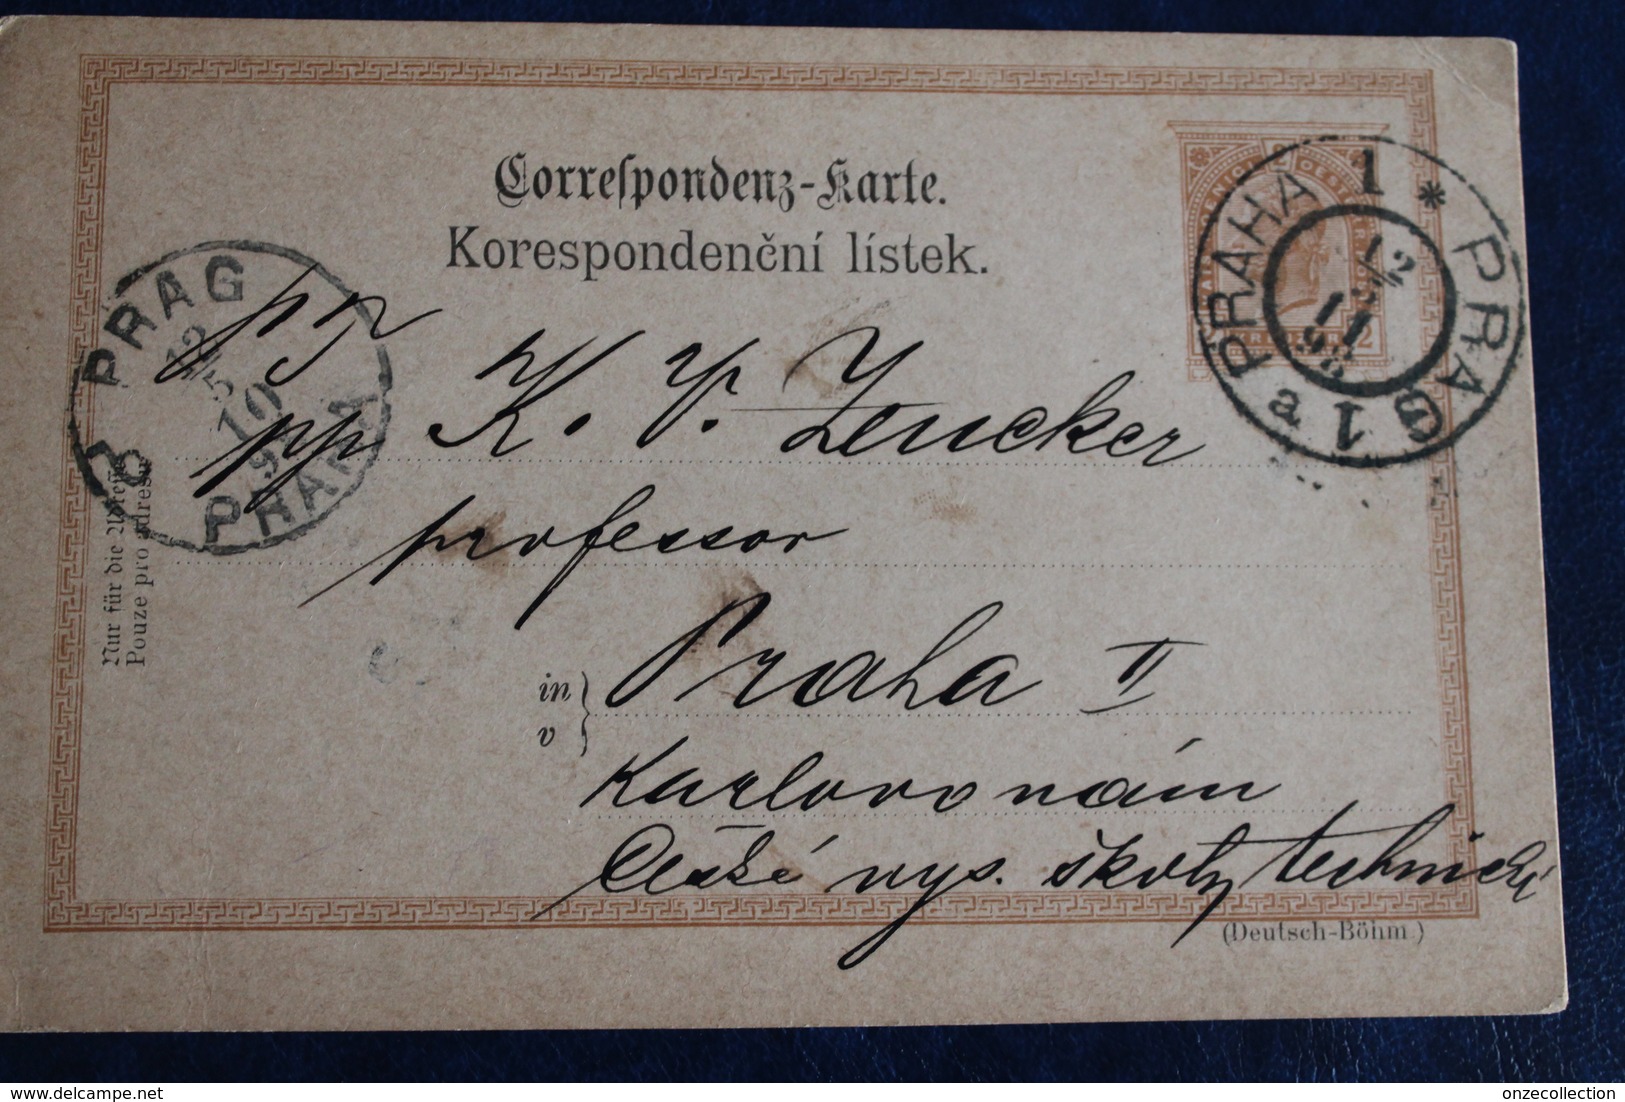 Correſpondenz-Karte.
Korespondenční lístek.
PRAHA 1 * PRAG 1 a
12
12
11
98
PRAG
12
5
10
PRAHA
pp K. V. Zencker
professor
Nur für die Adresse
Pouze pro adresu
in
v
Praha II
Karlovo nám
České vys. školy technické
(Deutsch-Böhm.)
onzecollection